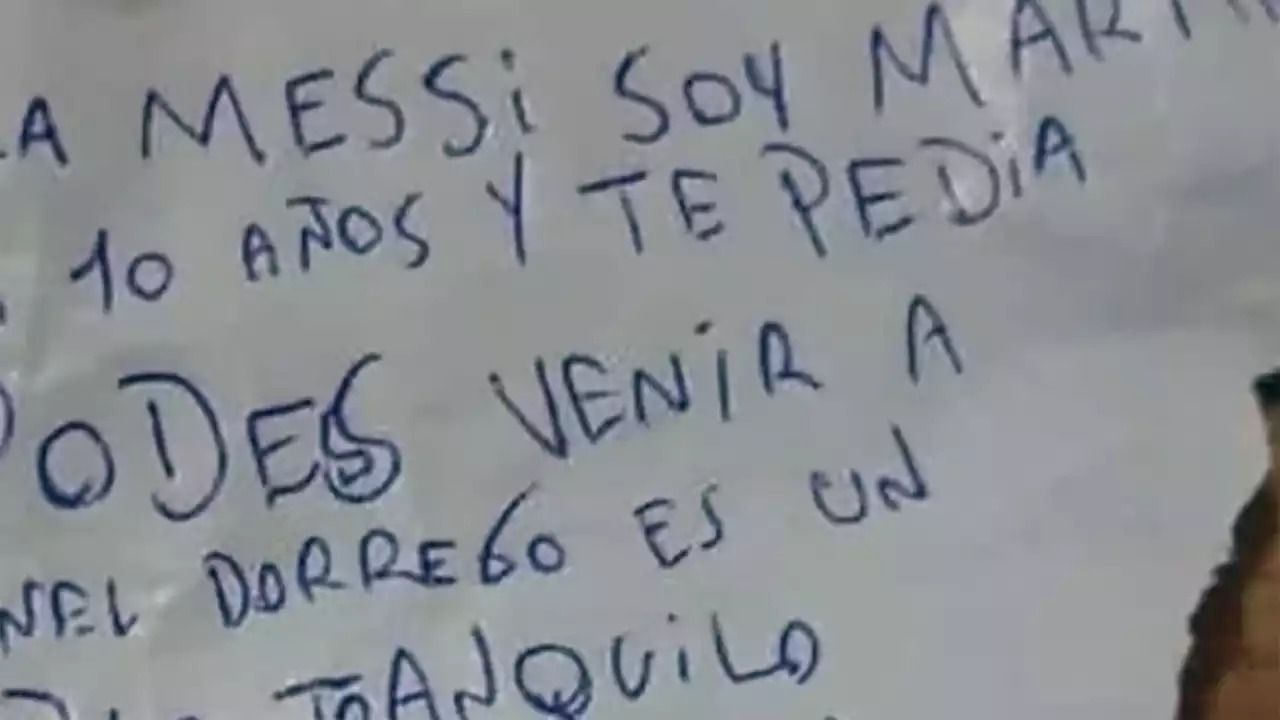 A MESSi SOY
10 AÑOS Y TE PEDiA
PODES VENiR A
NEL DORREGO ES UN
TRANQUiLO